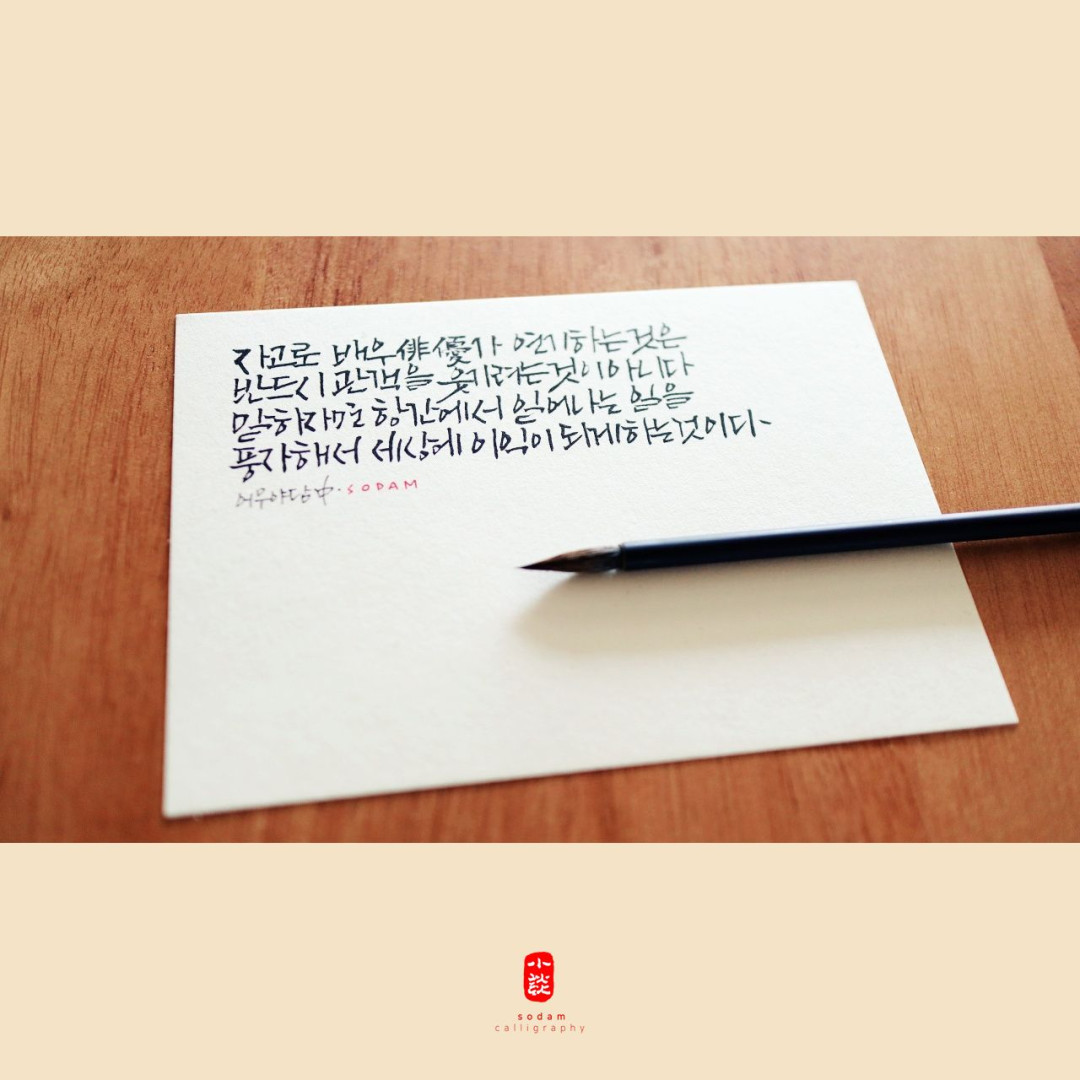 자고로 배우俳優가 연기하는것은
반드시 관객을 웃기려는것이아니다
말하자면 항간에서 일어나는 일을
풍자해서 세상에 이익이 되게하는것이다.
어우야담中·SODAM
小
談
sodam
calligraphy